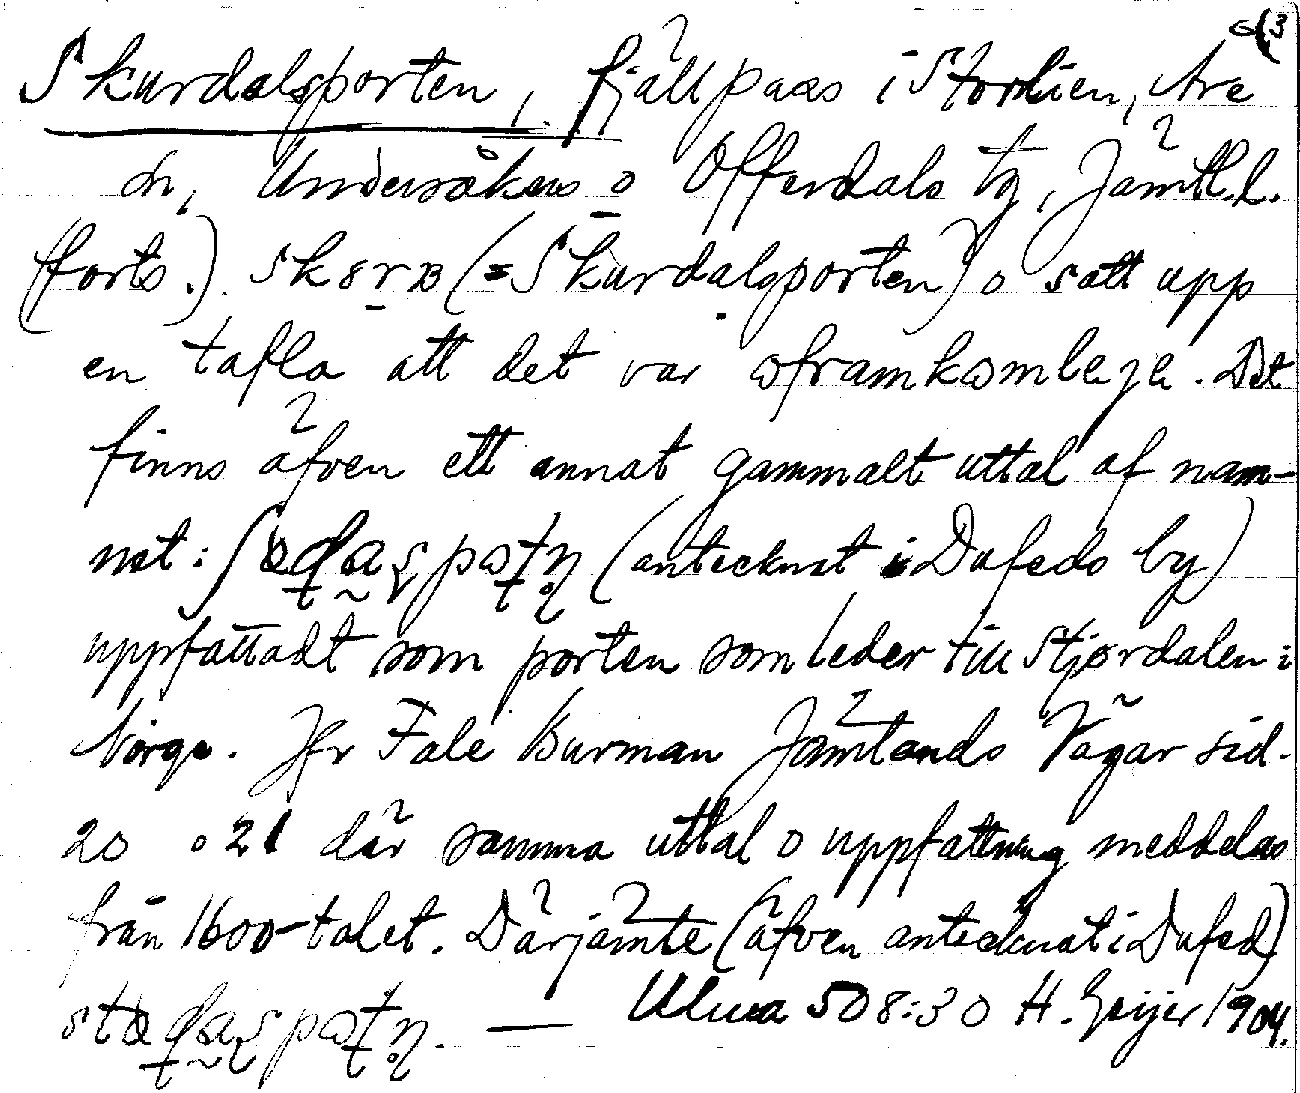 (3
Skurdalsporten, fjällpass i Storlien, Åre
sn, Undersåkers o Offerdals tg, Jämtl.l.
(forts.). (= Skurdalsporten) o satt upp
en tafla att det var oframkomleje. Det
finns äfven ett annat gammalt uttal af nam-
net: (antecknat i Dufeds by)
uppfattadt som porten som leder till Stjørdalen i
Norge. Jfr Fale Burman Jämtlands Vägar sid.
20 o 21 där samma uttal o uppfattning meddelas
från 1600-talet. Därjämte (äfven antecknat i Dufed)
— Ulma 508:30 H. Geijer 1904.